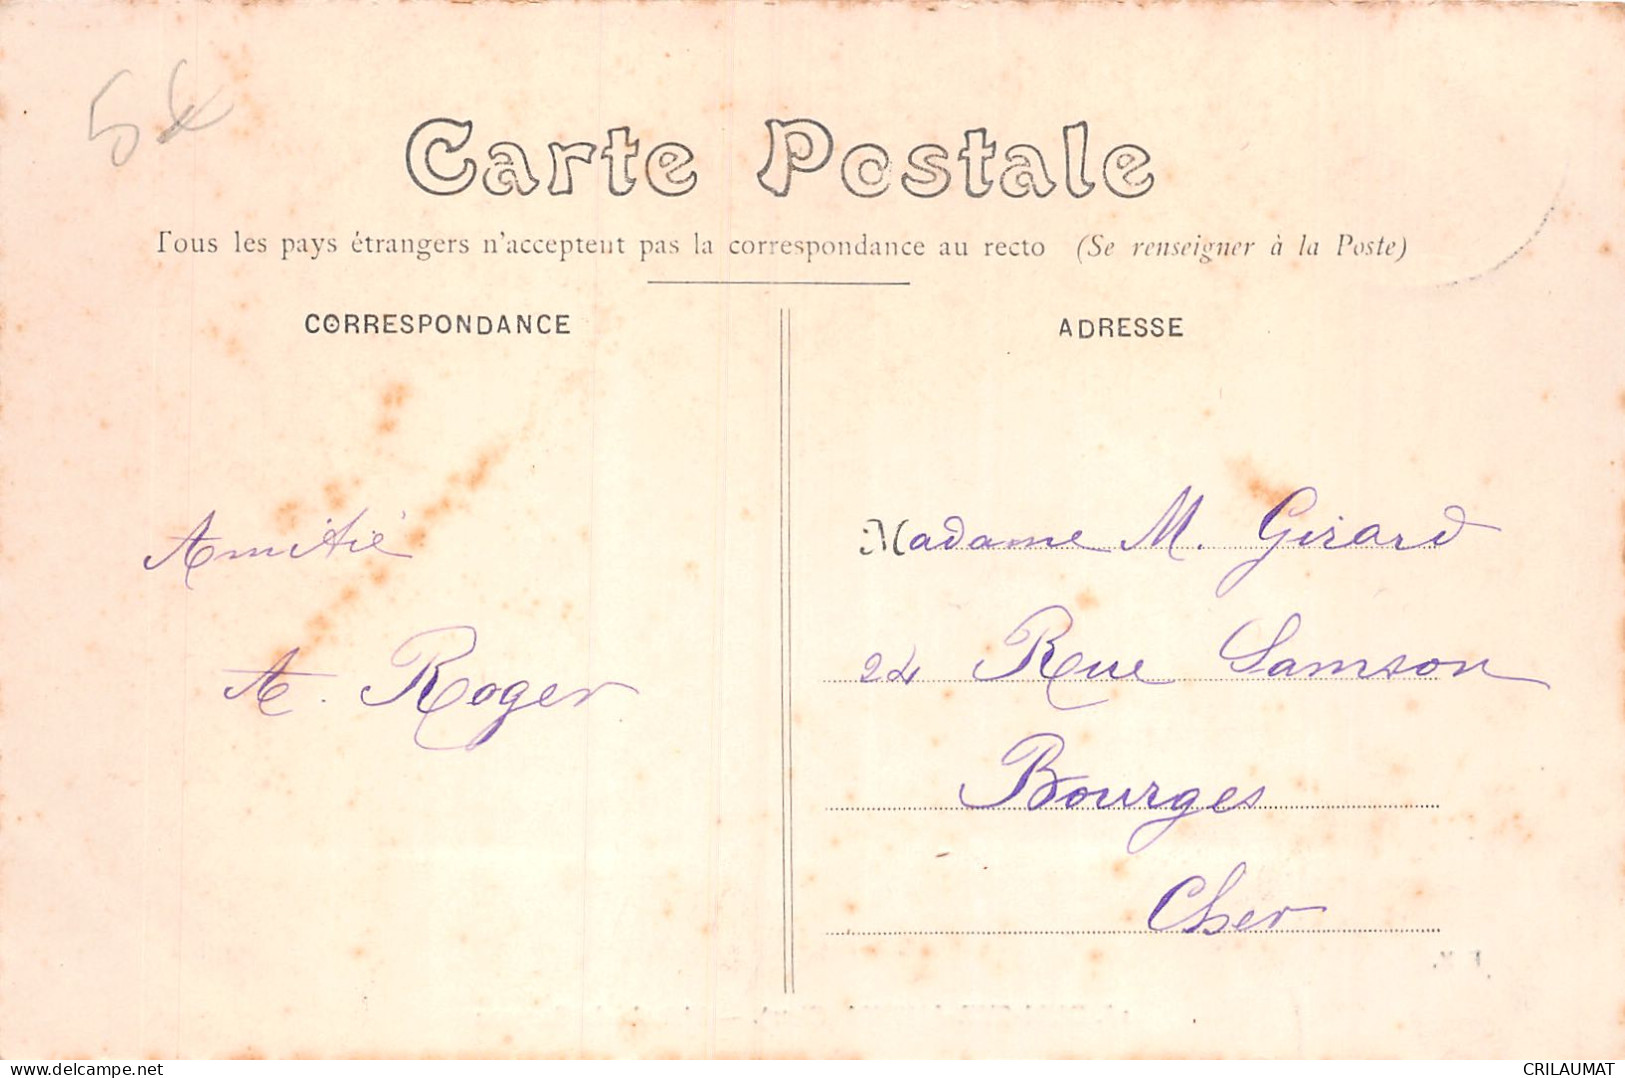 5€
Carte Postale
Tous les pays étrangers n'acceptent pas la correspondance au recto (Se renseigner à la Poste)
CORRESPONDANCE
Amitié
A. Roger
ADRESSE
Madame M. Girard
24 Rue Samson
Bourges
Cher
delcampe.net
CRILAUMAT